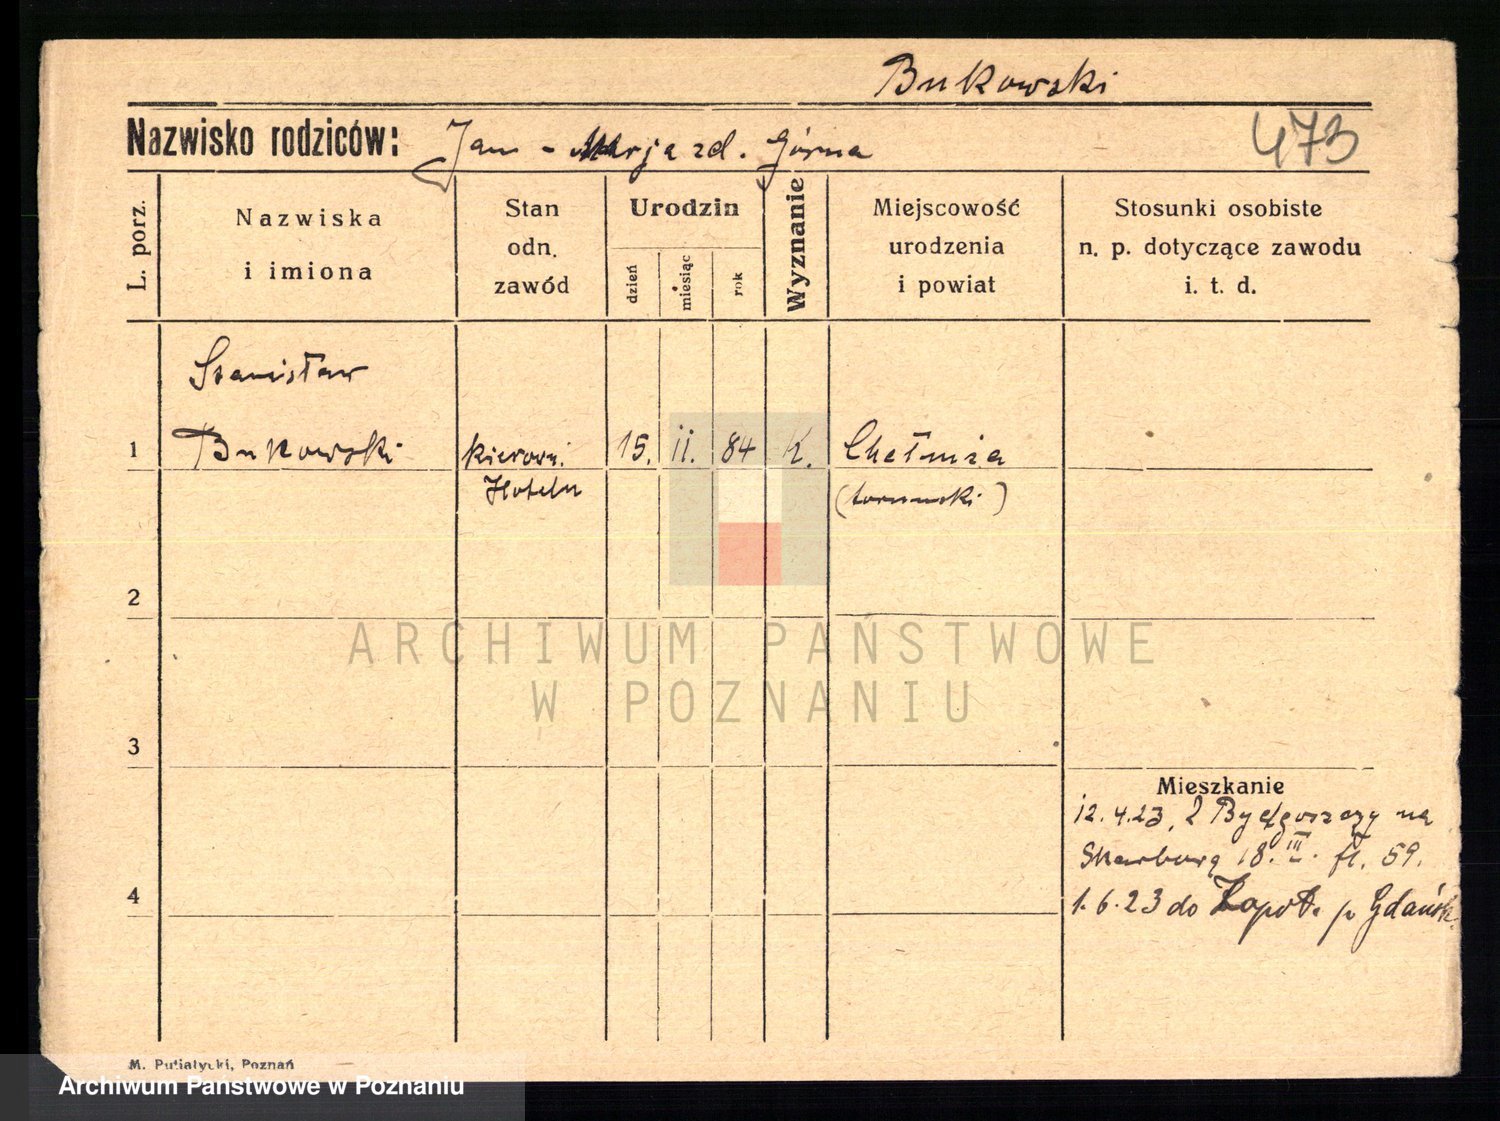 Bukowski
Nazwisko rodziców: Jan - Marja zd. Górna
473
L. porz.
Nazwiska
i imiona
Stan
odn.
zawód
Urodzin
dzień
miesiąc
rok
Wyznanie
Miejscowość
urodzenia
i powiat
Stosunki osobiste
n. p. dotyczące zawodu
i. t. d.
Stanisław
1 Bukowski kierown. 15. ii. 84 K. Chełmża
Hotelu (toruński)
2
ARCHIWUM PAŃSTWOWE
W POZNANIU
3
Mieszkanie
12.4.23. z Bydgoszczy na
Skarbową 18. III. fl. 59.
4
1.6.23 do Zopot. p Gdańsk.
M. Putiatycki, Poznań
Archiwum Państwowe w Poznaniu